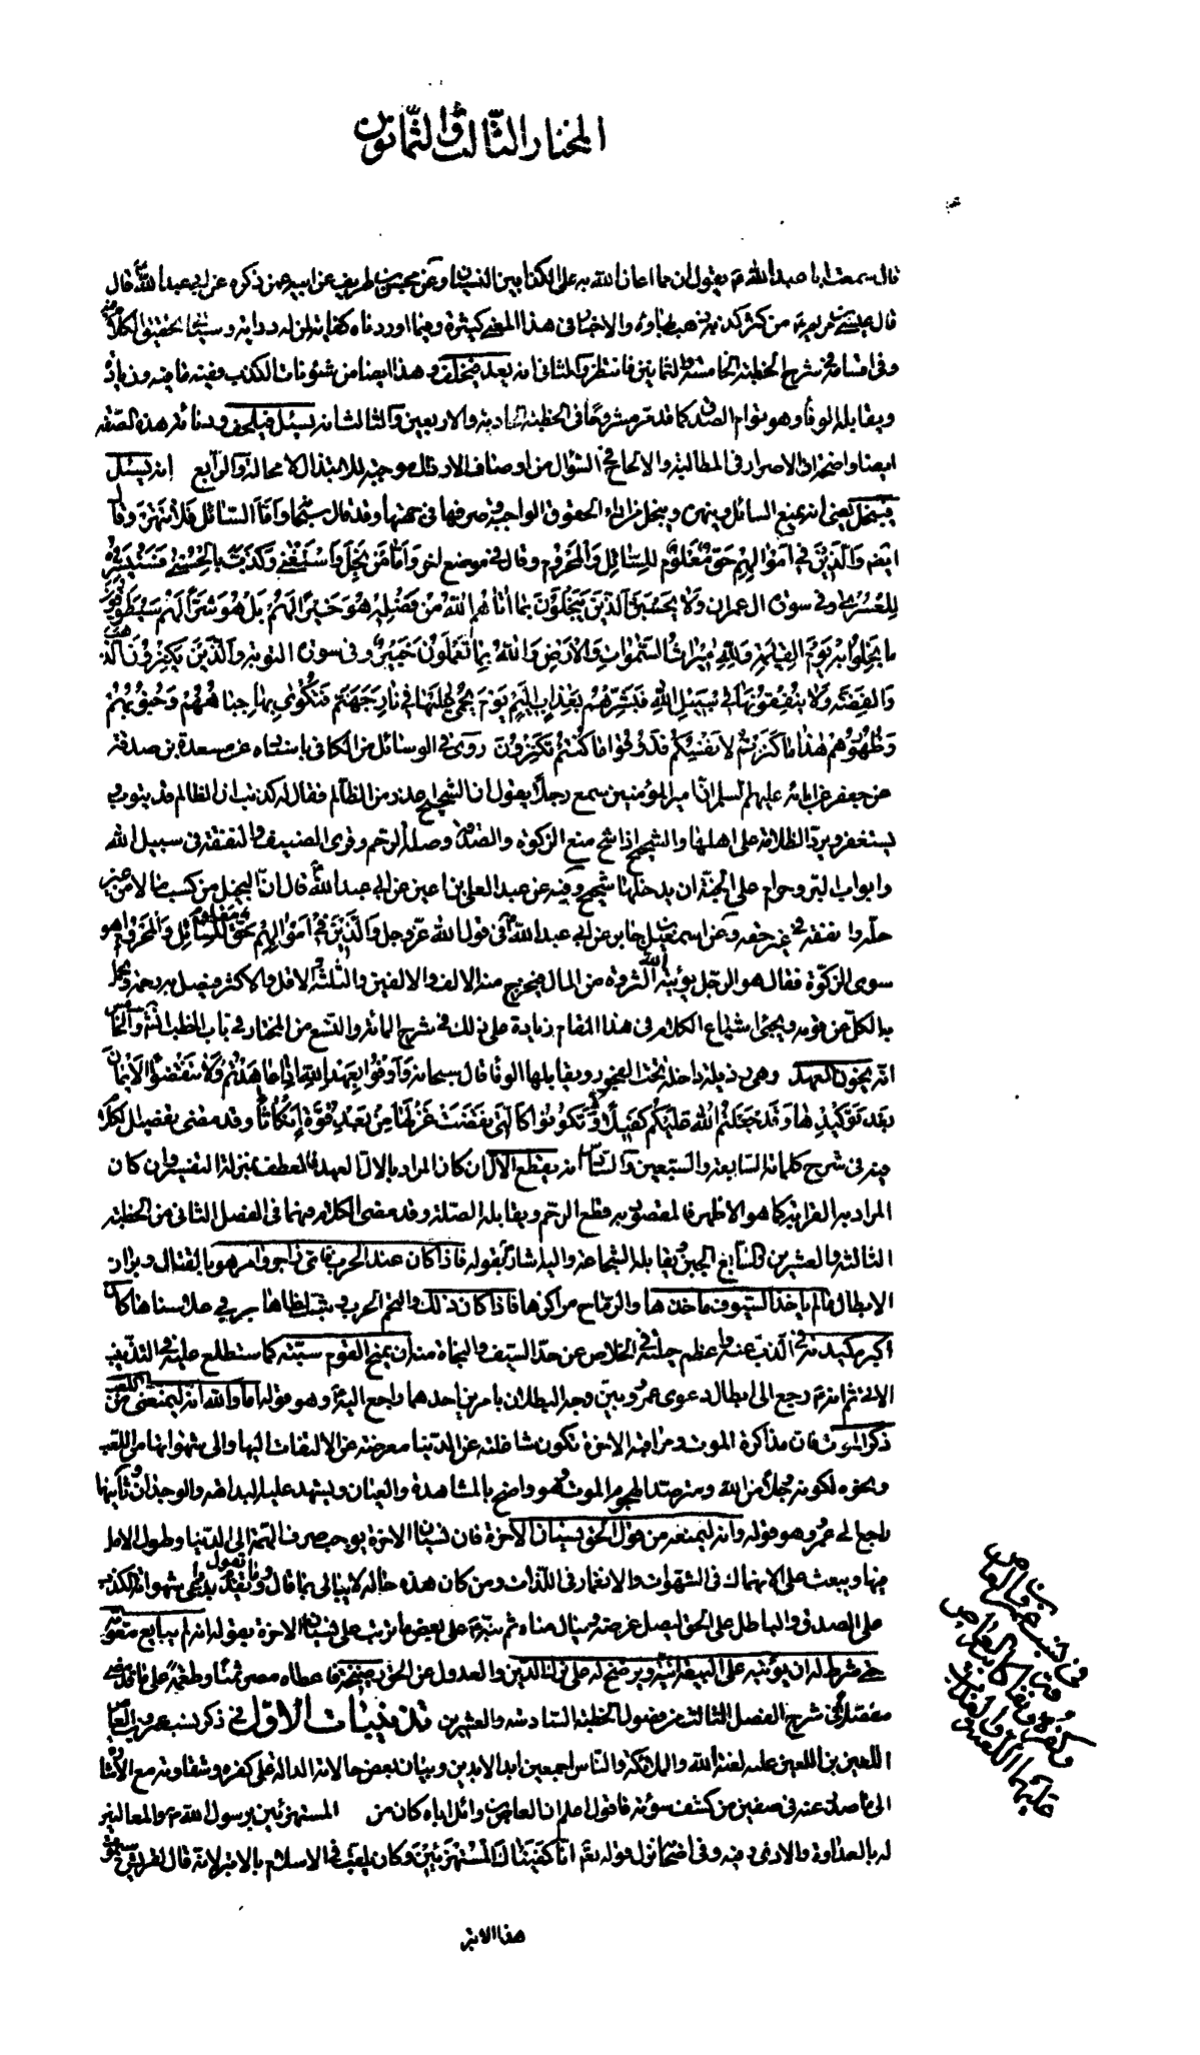 المختار الثالث والثمانون
قال سمعت ابا عبد الله ع يقول ان مما اعان الله به على الكذابين النسيان وعن محسن بن طريف عن ابيه عمن ذكره عن ابي عبد الله ع قال
قال عيسى بن مريم ع من كثر كذبه ذهب بهاؤه والاخبار في هذا المعنى كثيرة وفيما اوردناه كفاية لمن له دراية وسيأتي تحقيق الكلام فيه
وفي اقسامه في شرح الخطبة الخامسة والثمانين فانتظر والثاني انه يعد فيخلف وهذا ايضا من شئونات الكذب وفيه ما فيه وزيادة
ويقابله الوفاء وهو توام الصدق كما قد مر مشروحا في الخطبة الحادية والاربعين والثالث انه يسئل فيلحف ودنائة هذه الصفة
ايضا واضحة اذ الاصرار في المطالبة والالحاح في السؤال من اوصاف الاراذل موجبة للابتذال لا محالة والرابع انه يسئل
فيبخل يعني انه يمنع السائل وينهره ويبخل من اداء الحقوق الواجبة وصرفها في جهتها وقد قال سبحانه واما السائل فلا تنهر وقال
ايضا والذين في اموالهم حق معلوم للسائل والمحروم وقال في موضع اخر واما من بخل واستغنى وكذب بالحسنى فسنيسره
للعسرى وفي سورة ال عمران ولا يحسبن الذين يبخلون بما اتاهم الله من فضله هو خيرا لهم بل هو شر لهم سيطوقون
ما بخلوا به يوم القيمة ولله ميراث السموات والارض والله بما تعملون خبير وفي سورة التوبة والذين يكنزون الذهب
والفضة ولا ينفقونها في سبيل الله فبشرهم بعذاب اليم يوم يحمى عليها في نار جهنم فتكوى بها جباههم وجنوبهم
وظهورهم هذا ما كنزتم لانفسكم فذوقوا ما كنتم تكنزون روى في الوسائل من الكافي باسناده عن مسعدة بن صدقة
عن جعفر عن ابائه عليهم السلم ان امير المؤمنين سمع رجلا يقول ان الشحيح اعذر من الظالم فقال له كذبت ان الظالم قد يتوب و
يستغفر ويرد الظلامة على اهلها والشحيح اذا شح منع الزكوة والصدقة وصلة الرحم وقرى الضيف والنفقة في سبيل الله
وابواب البر وحرام على الجنة ان يدخلها شحيح وفيه عن عبد العلى بن اعين عن ابي عبد الله ع قال ان البخيل من كسب مالا من غير
حله وانفقه في غير حقه وعن اسمعيل بن جابر عن ابي عبد الله ع في قول الله عز وجل والذين في اموالهم حق معلوم للسائل والمحروم اهو
سوى الزكوة فقال هو الرجل يؤتيه الله الثروة من المال فيخرج منه الالف والالفين والثلثة والاقل والاكثر فيصل به رحمه ويحمل
به الكل عن قومه ويجئ اشباع الكلام في هذا المقام زيادة على ذلك في شرح المائة والتسع من المختار في باب الخطب انشاء الله والخامس
انه يخون العهد وهي رذيلة داخلة تحت الفجور ويقابلها الوفاء قال سبحانه واوفوا بعهد الله اذا عاهدتم ولا تنقضوا الايمان
بعد توكيدها وقد جعلتم الله عليكم كفيلا ولا تكونوا كالتي نقضت غزلها من بعد قوة انكاثا وقد مضى تفصيل الكلام
فيه في شرح كلماته السابعة والسبعين والسادس انه يقطع الال ان كان المراد بالال العهد فالعطف بمنزلة التفسير وان كان
المراد به القرابة كما هو الاظهر فالمقصود به قطع الرحم ويقابله الصلة وقد مضى الكلام فيهما في الفصل الثاني من الخطبة
الثالثة والعشرين والسابع الجبن ويقابله الشجاعة واليه اشار بقوله فاذا كان عند الحرب فاي زاجر وامر هو بالقتال وبزال
الابطال ما لم ياخذ السيوف ماخذها والرماح مراكزها فاذا كان ذلك والتحم الحرب وشب لظاها
اكبر مكيدته في الذب عنه واعظم حيلته في الخلاص عن حد السيف والنجاة منه ان يمنح القوم سبته كما ستطلع عليه في التذنيب
الاتي ثم انه ع رجع الى ابطال دعوى عمرو وبين وجه البطلان بامرين احدهما راجع اليه ع وهو قوله اما والله انه ليمنعني من اللعب
ذكر الموت فان مذاكرة الموت ومراقبة الاخرة تكون شاغلة عن الدنيا معرضة عن الالتفات اليها والى شهواتها من اللعب
ونحوه لكونه وجلا من الله ومترصدا لهجوم الموت وهو واضح بالمشاهدة والعيان ويشهد عليه البداهة والوجدان وثانيهما
راجع الى عمرو وهو قوله وانه ليمنعه من قول الحق نسيان الاخرة فان نسيان الاخرة يوجب صرف الهمة الى الدنيا وطول الامل
فيها ويبعث على الانهماك في الشهوات والانغمار في اللذات ومن كان هذه حاله لا يبالي بما قال وما يقول شهواته الكذب
على الصدق والباطل على الحق ليصل غرضه وينال مناه ثم نبه ع على بعض ما ترتب على نسيان الاخرة بقوله انه لم يبايع معوية
حتى شرط له ان يؤتيه على البيعة اتية ويرضخ له على ترك الدين والعدول عن الحق رضيخة فاعطاه مصر ثمنا وطعمة على ما قد مضى
مفصلا في شرح الفصل الثالث من فصول الخطبة السادسة والعشرين تذنيبات الاول في ذكر نسب عمرو بن العاص
اللعين بن اللعين عليه لعنة الله والملائكة والناس اجمعين ابد الابدين وبيان بعض حالاته الدالة على كفره وشقاوته مع الاشارة
الى ما صدر عنه في صفين من كشف سوئته فاقول اعلم ان العاص بن وائل اباه كان من المستهزئين برسول الله ص والمعالنين
له بالعداوة والاذى وفيه وفي اصحابه نزل قوله تعالى انا كفيناك المستهزئين وكان يلقب في الاسلام بالابتر لانه قال لقريش سيموت
هذا الابتر
في نسب عمرو بن العاص